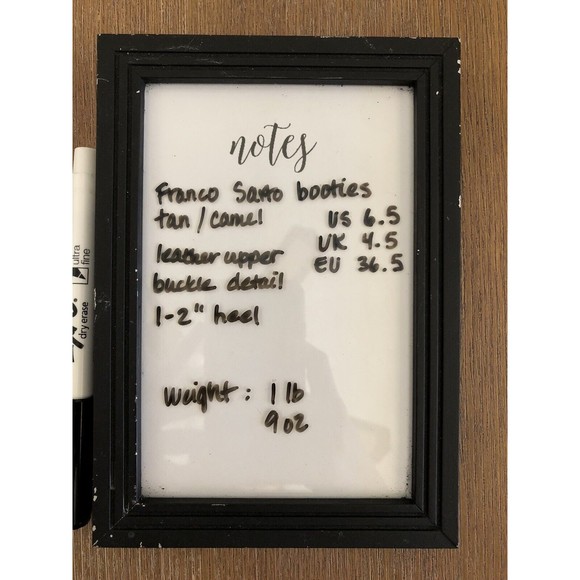 notes
Franco Sarto booties
tan / camel US 6.5
UK 4.5
leather upper EU 36.5
buckle detail
1-2" heel
Weight: 1 lb
9 oz
ultra
fine
dry erase